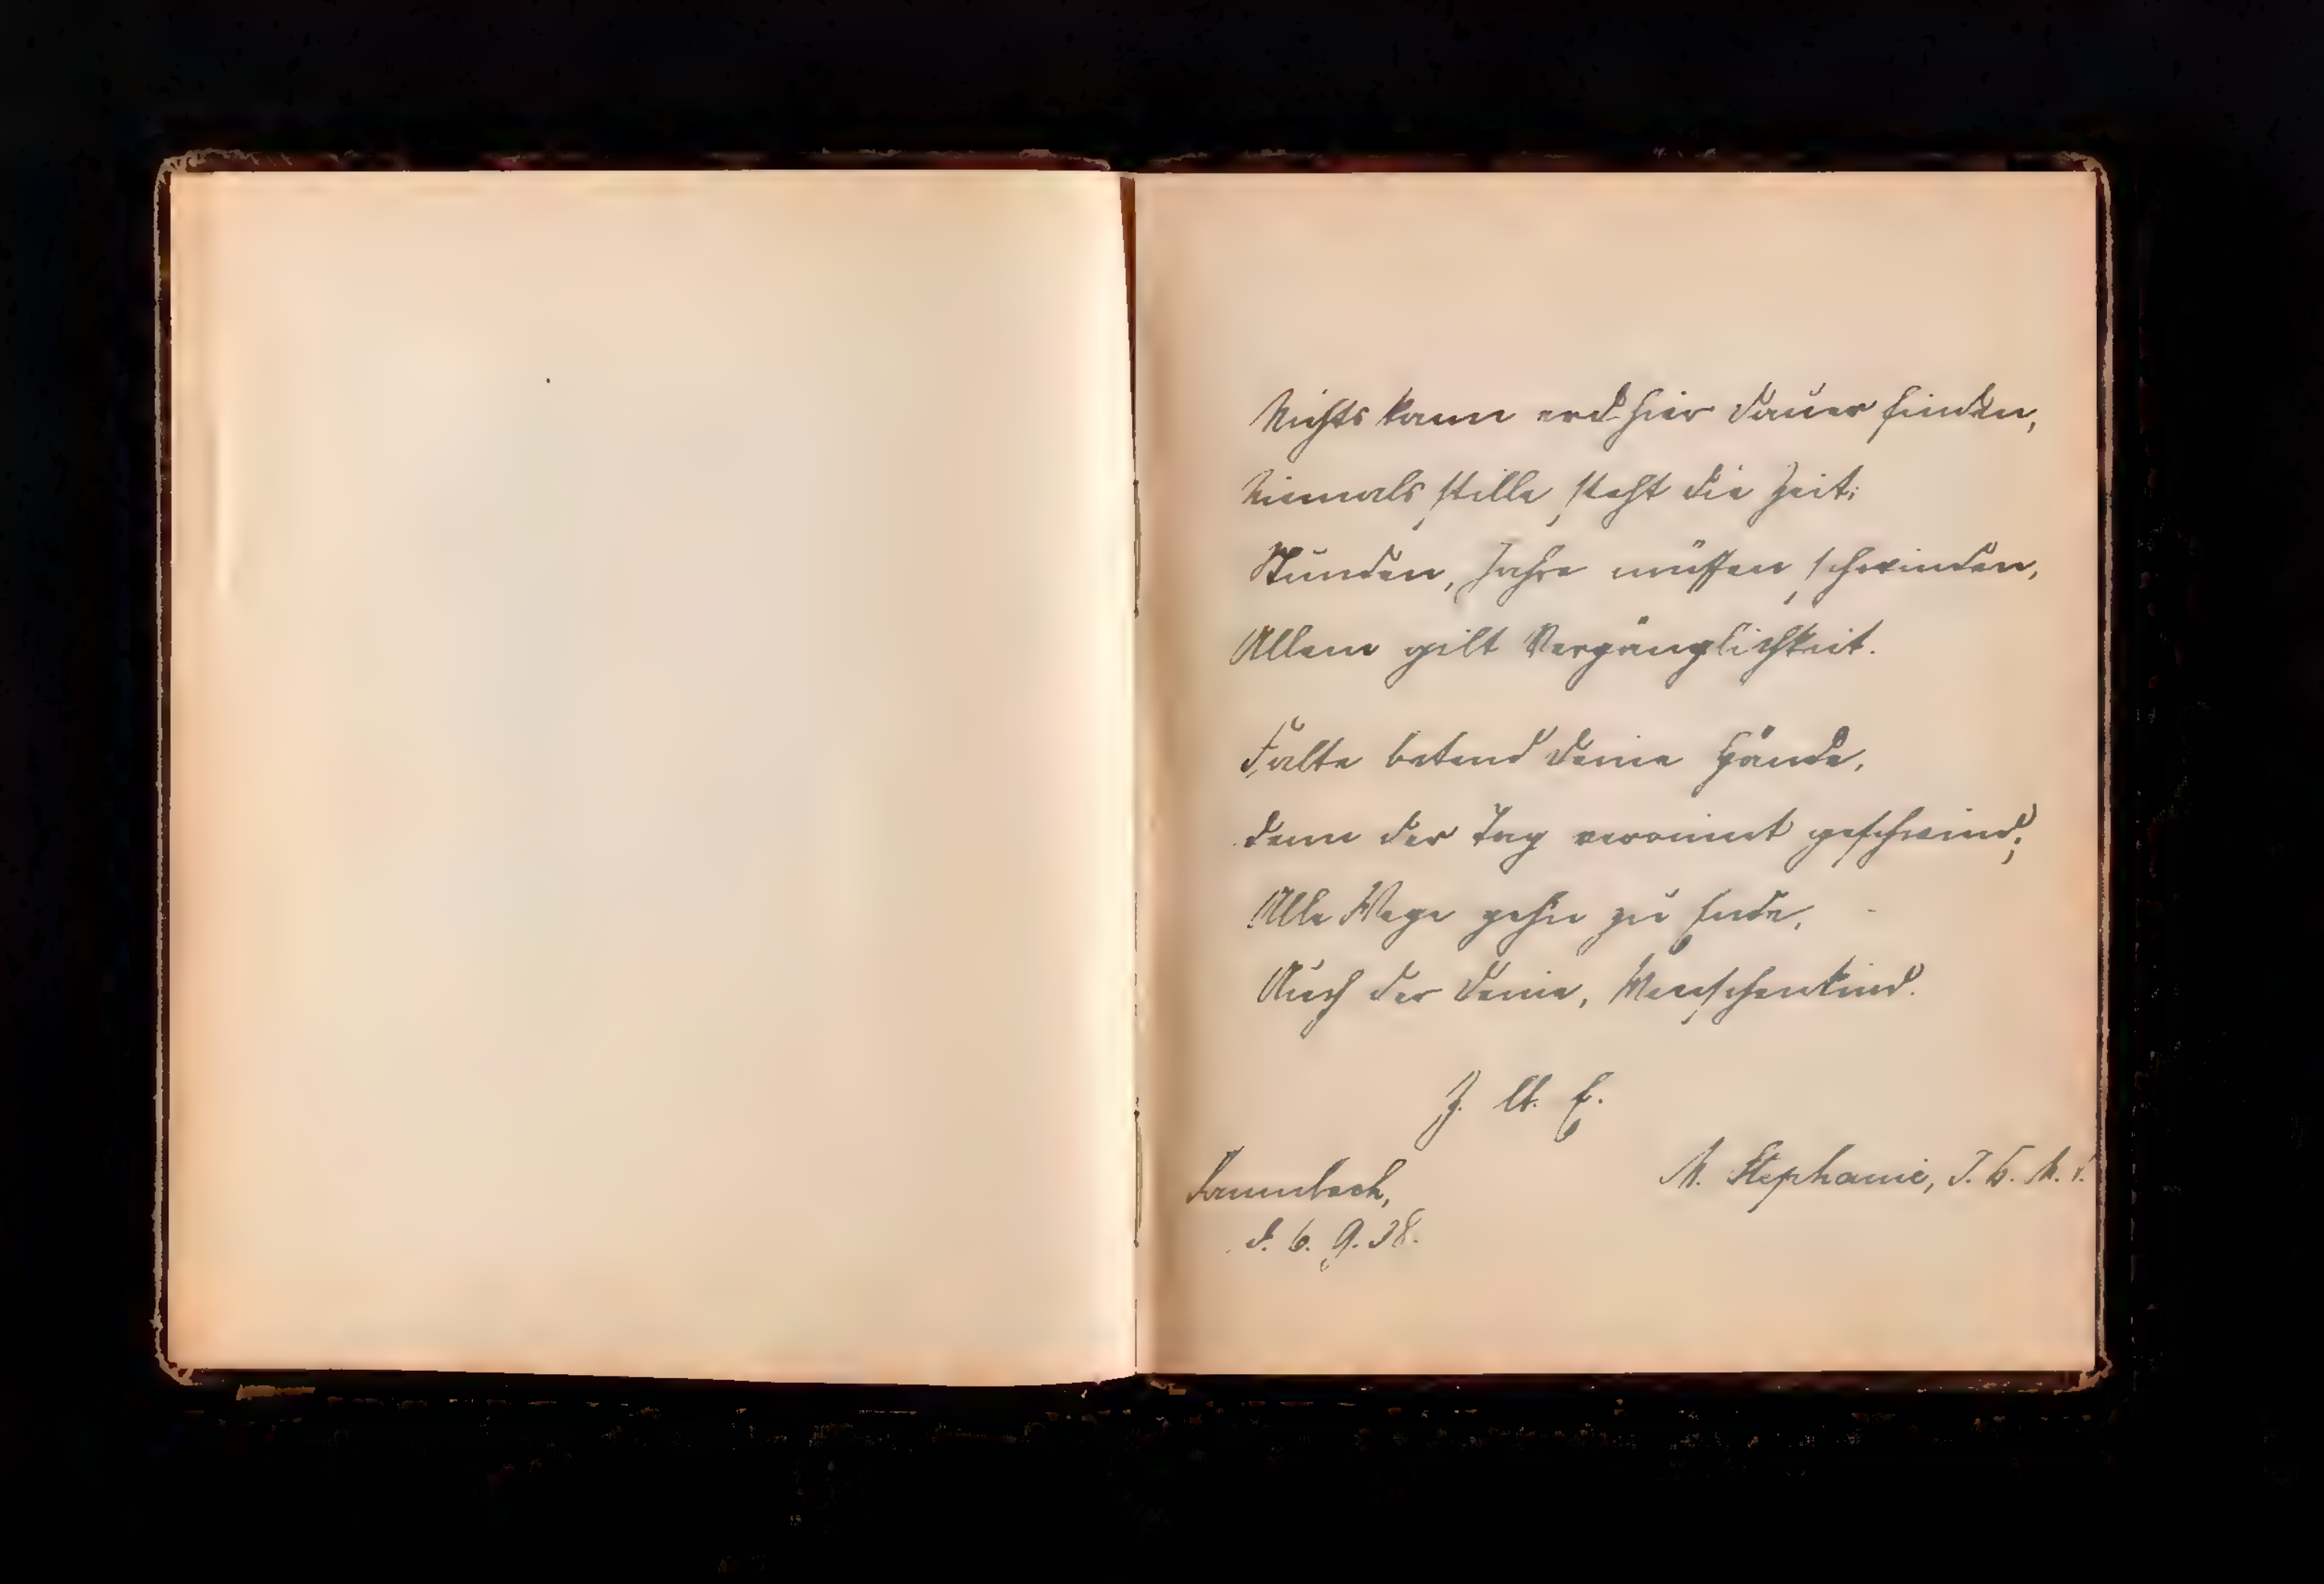 Nichts kann erdhier Dauer finden,
Niemals stille steht die Zeit;
Stunden, Jahre müssen schwinden,
Allem gilt Vergänglichkeit.
Falte betend deine Hände,
denn der Tag verrinnt geschwind;
Alle Wege gehn zu Ende,
Auch der deine, Menschenkind.
Z. lb. E.
M. Stephanie, I. B. M. V.
d. 6. 9. 38.